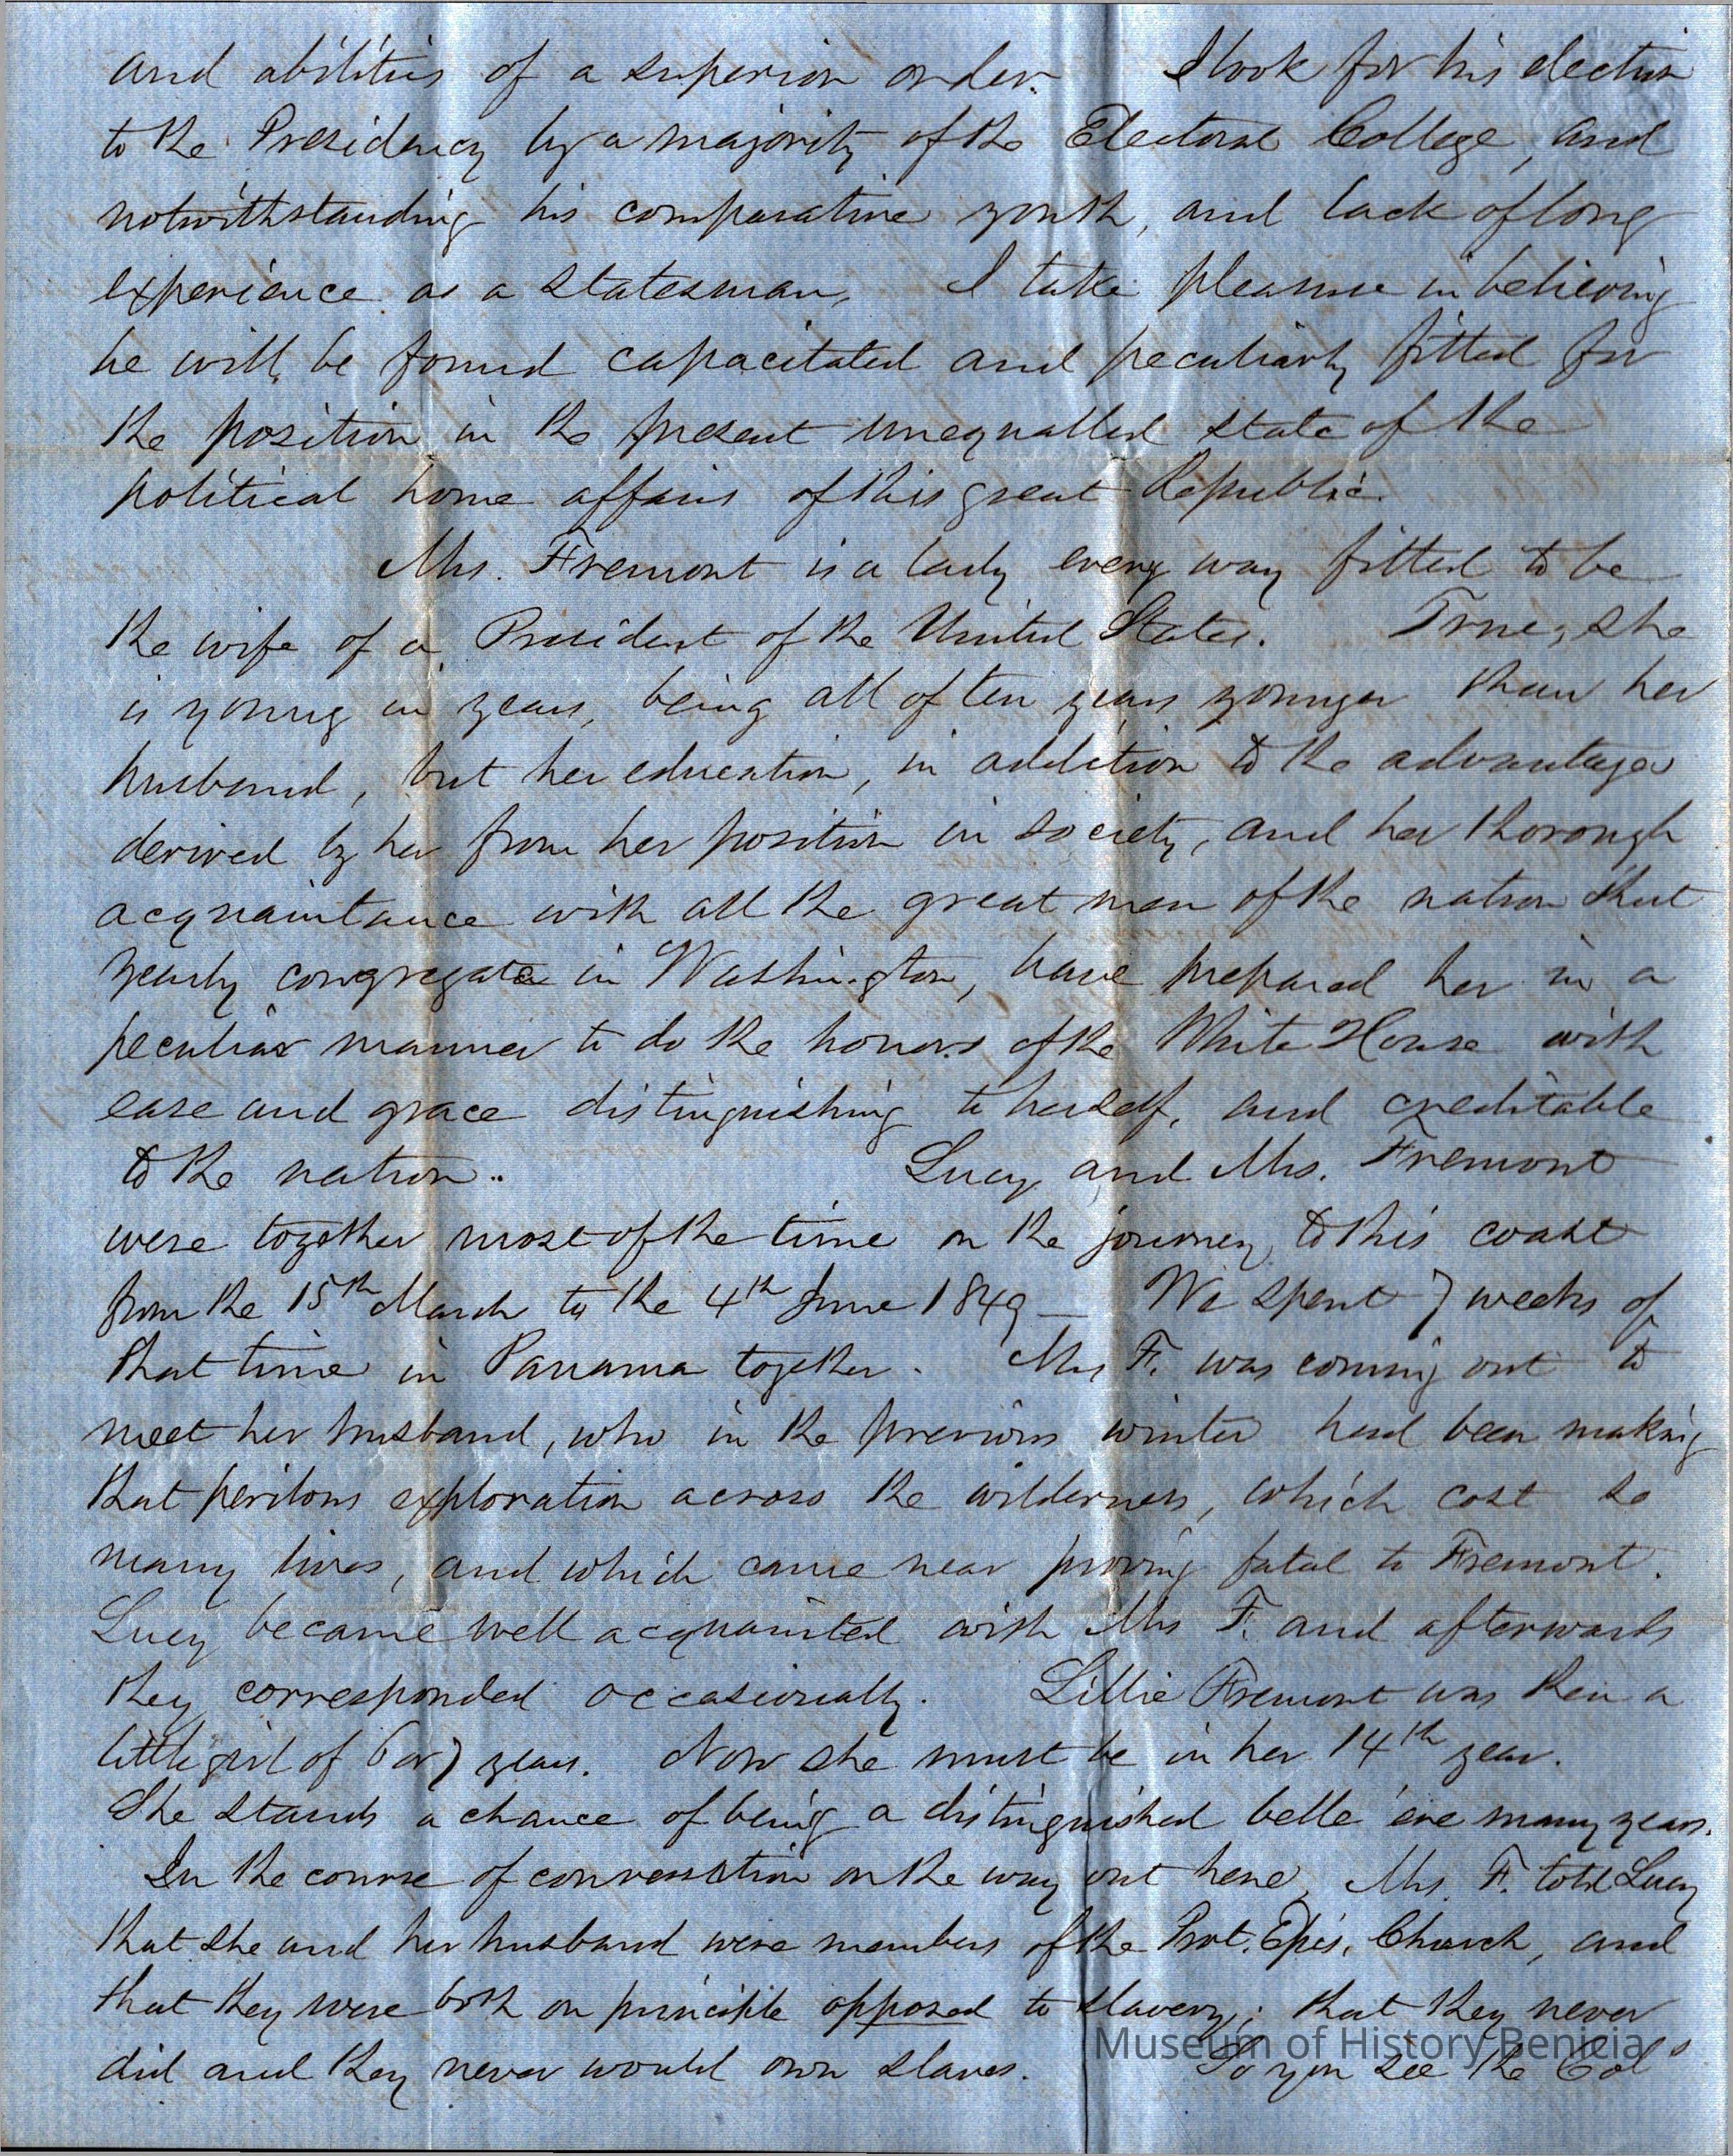 and abilities of a superior order. I look for his election
to the Presidency by a majority of the Electoral College, and
notwithstanding his comparative youth, and lack of long
experience as a statesman, I take pleasure in believing
he will be found capacitated and peculiarly fitted for
the position in the present unequalled state of the
political home affairs of this great Republic.
Mrs. Fremont is a lady every way fitted to be
the wife of a President of the United States. True, she
is young in years, being all of ten years younger than her
husband, but her education, in addition to the advantages
derived by her from her position in society, and her thorough
acquaintance with all the great men of the nation that
yearly congregate in Washington, have prepared her in a
peculiar manner to do the honors of the White House with
ease and grace distinguishing to herself, and creditable
to the nation. Lucy and Mrs. Fremont
were together most of the time on the journey to this coast
from the 15th March to the 4th June 1849 — We spent 7 weeks of
that time in Panama together. Mrs F. was coming out to
meet her husband, who in the previous winter had been making
that perilous exploration across the wilderness, which cost so
many lives, and which came near proving fatal to Fremont.
Lucy became well acquainted with Mrs F. and afterwards
they corresponded occasionally. Lillie Fremont was then a
little girl of 6 or 7 years. Now she must be in her 14th year.
She stands a chance of being a distinguished belle 'ere many years.
In the course of conversation on the way out here, Mrs. F. told Lucy
that she and her husband were members of the Prot. Epis. Church, and
that they were both on principle opposed to slavery; that they never
did and they never would own slaves. So you see the Col's
Museum of History Benicia